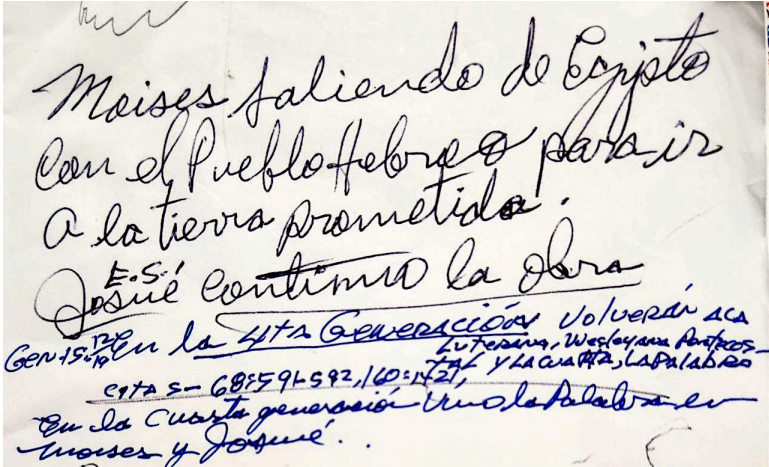 Moises saliendo de Egipto
con el Pueblo Hebreo para ir
a la tierra prometida.
E.S.
Josué continuo la obra
Gen-15: en la 4ta Generación Volverán aca
Luterana, Wesleyana Pentecos-
tal y la cuarta, la Palabra
citas-
En la cuarta generación Vino la Palabra en
Moises y Josué..